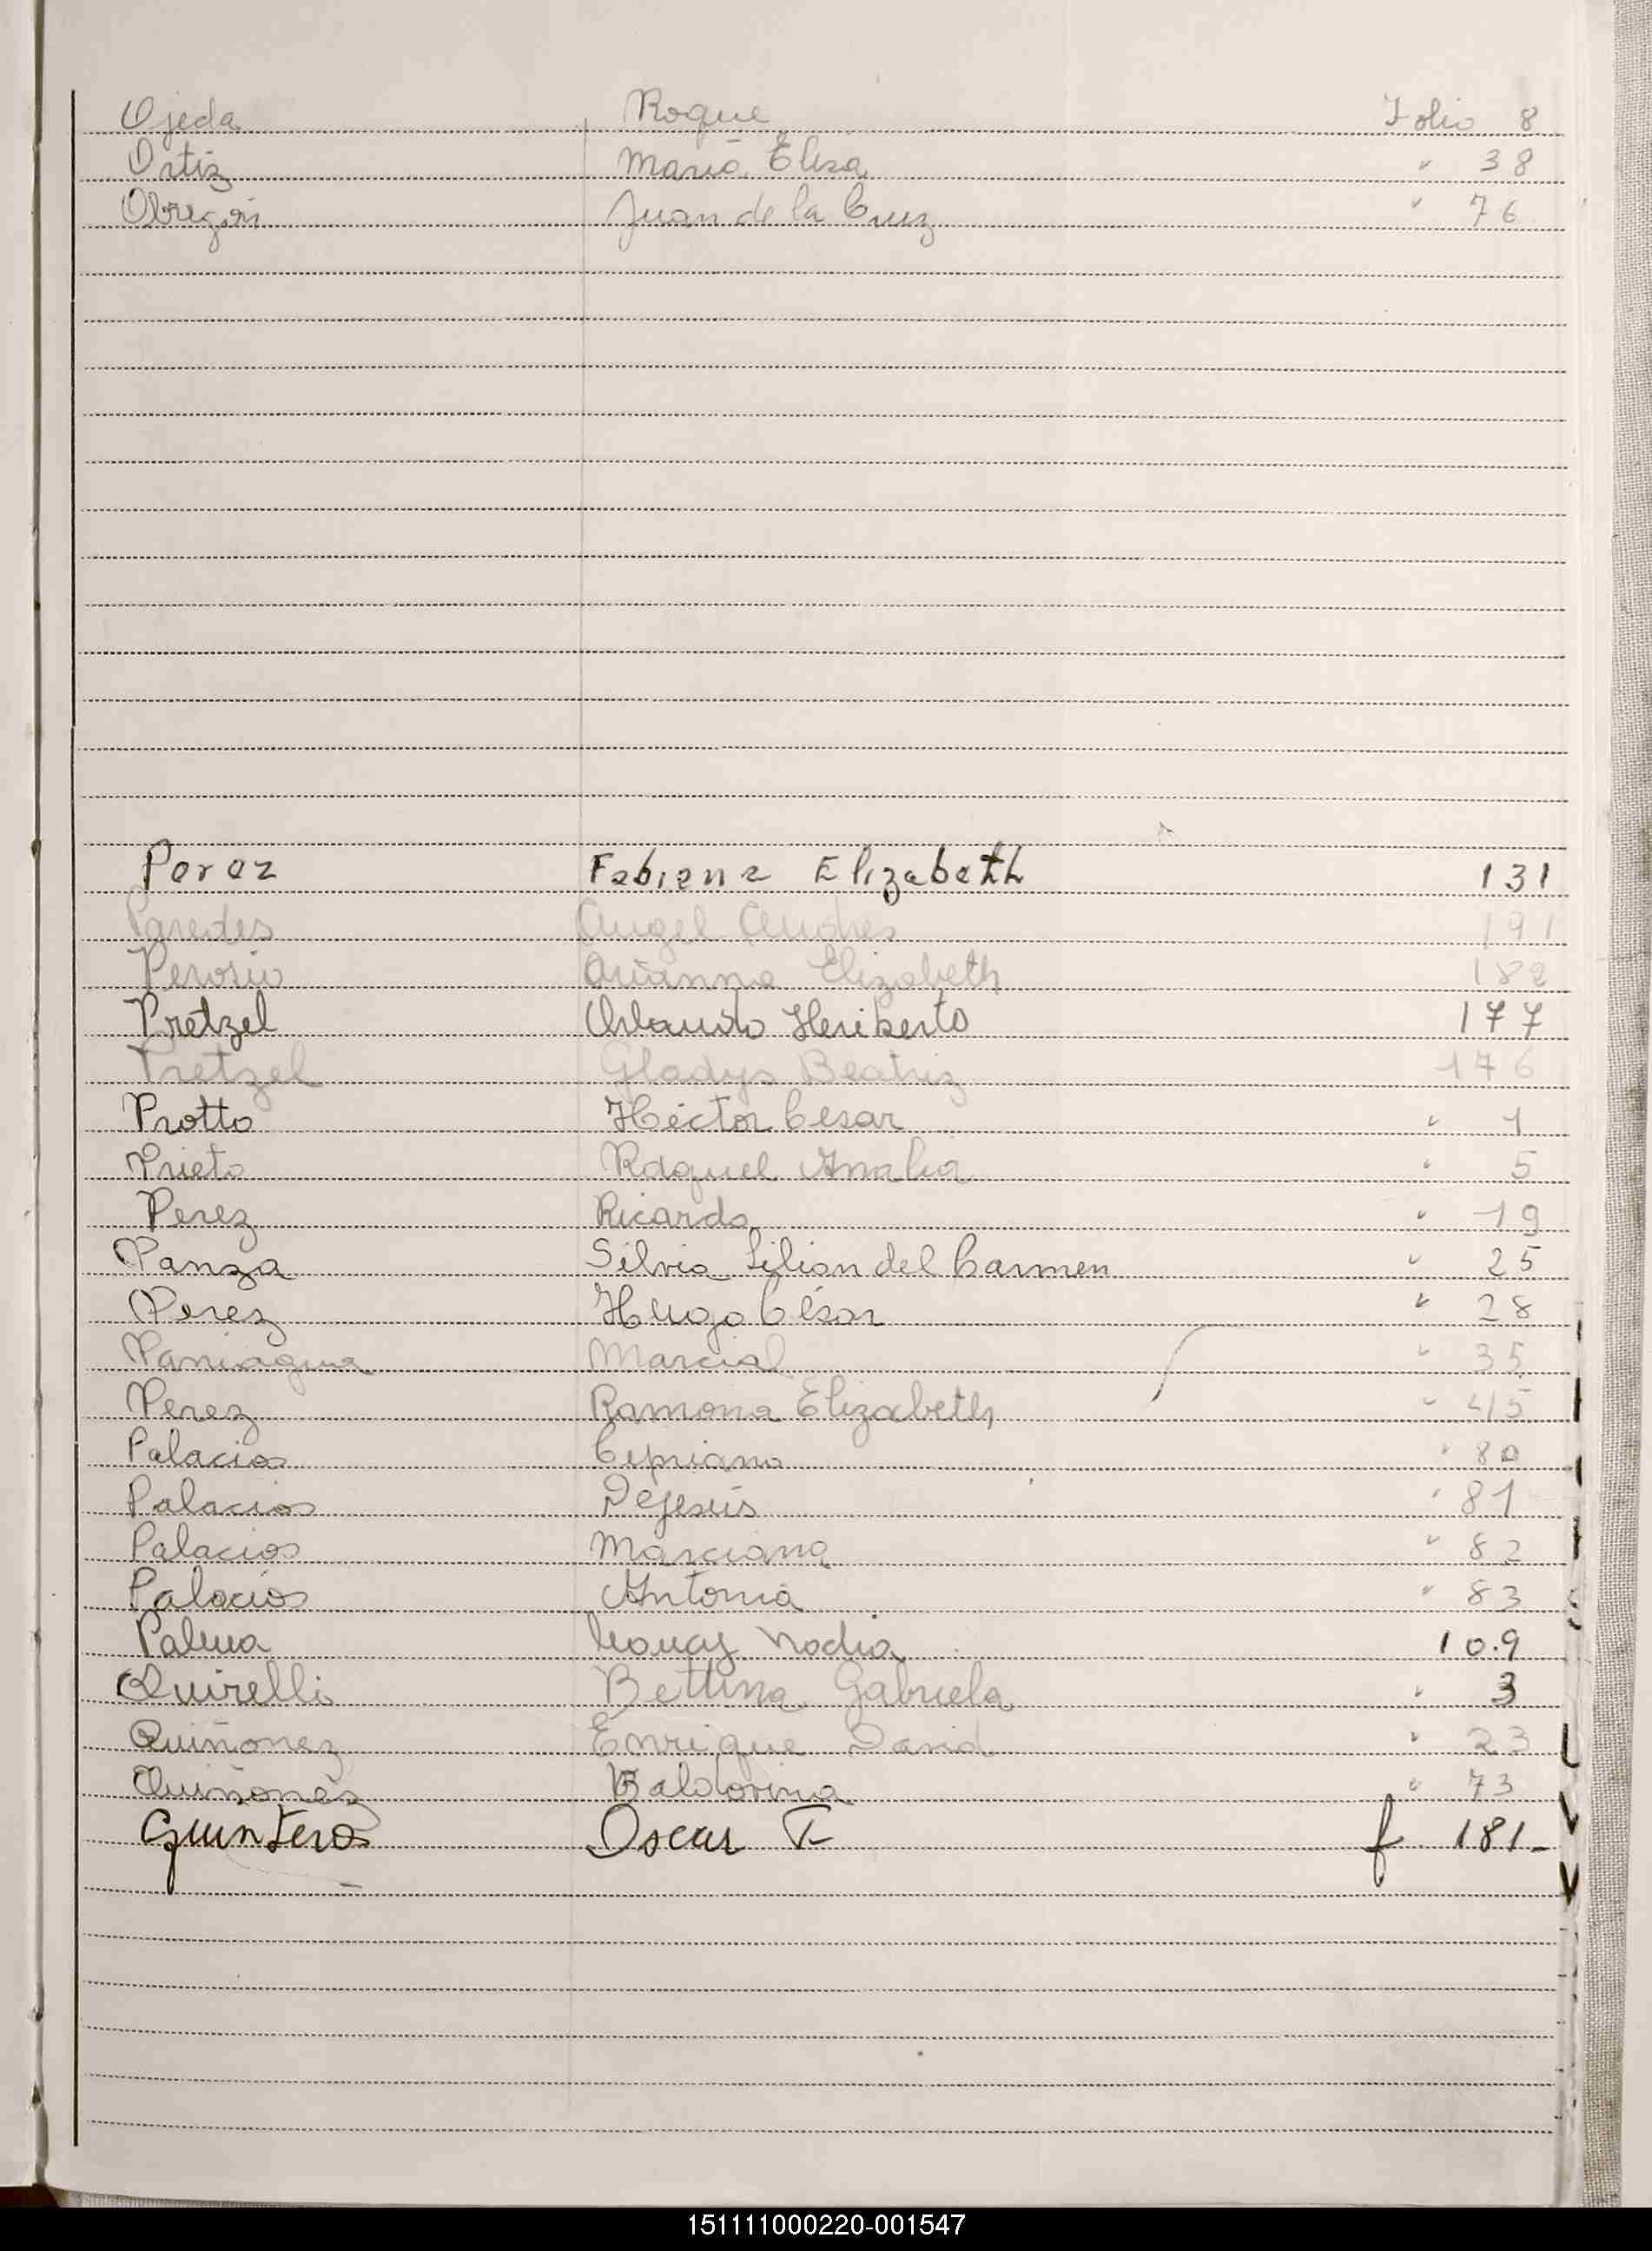 Ojeda Roque Folio 8
Ortiz Maria Elisa " 38
Obregón Juan de la Cruz " 76
Perez Fabiana Elizabeth 131
Paredes Angel Andres 191
Perosio Arianna Elizabeth 182
Pretzel Orlando Heriberto 177
Pretzel Gladys Beatriz 176
Protto Héctor Cesar " 1
Prieto Raquel Analia " 5
Perez Ricardo " 19
Panza Silvia Lilian del Carmen " 25
Perez Hugo César " 28
Paniagua Marcial " 35
Perez Ramona Elizabeth " 45
Palacios Cipriano " 80
Palacios Dejesús " 81
Palacios Marciana " 82
Palacios Antonia " 83
Palma Nadia 10.9
Quirelli Bettina Gabriela " 3
Quiñonez Enrique David " 23
Quiñonez Baldovina " 73
Quinteros Oscar F. f 181-
151111000220-001547